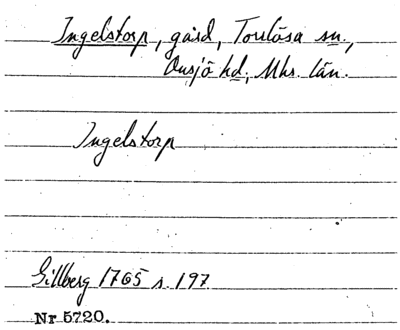 Ingelstorp, gård, Torrlösa sn.,
Onsjö hd, Mhs. län.
Ingelstorp
Gillberg 1765 s. 197
Nr 5720.